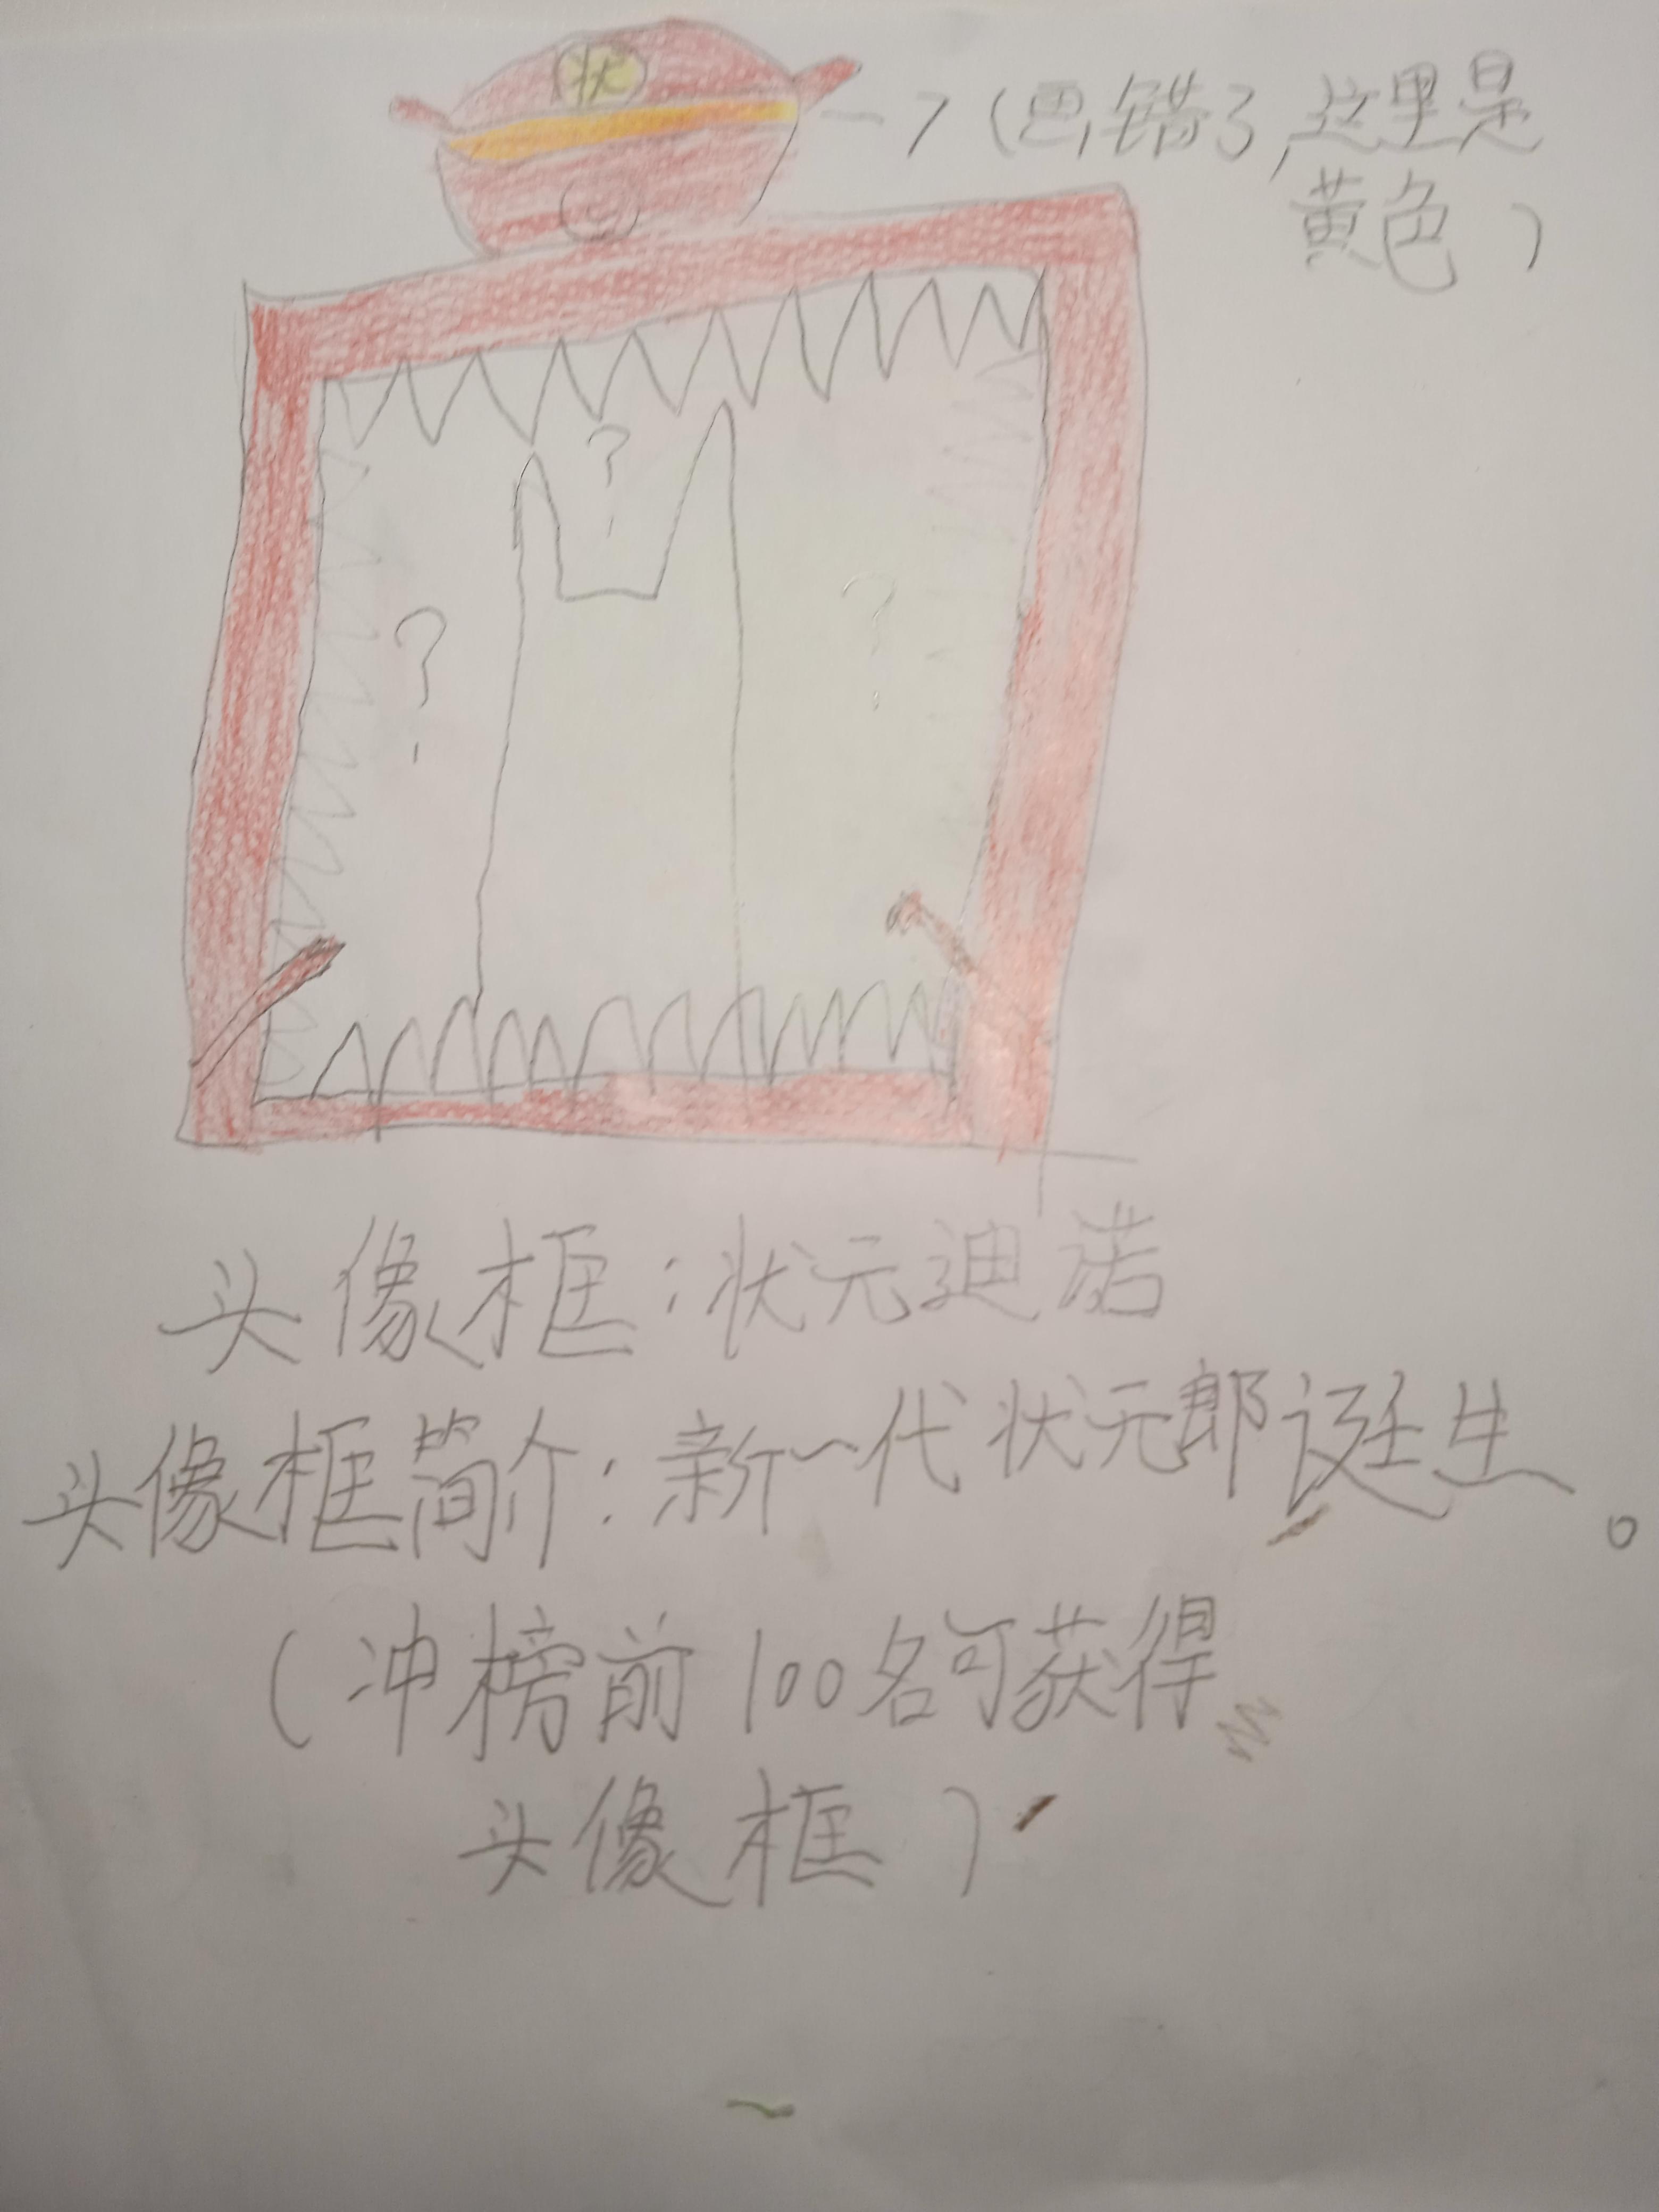 状
错了,这里是
黄色)
?
?
?
头像框:状元迪诺
头像框简介:新一代状元郎诞生。
(冲榜前100名可获得
头像框)